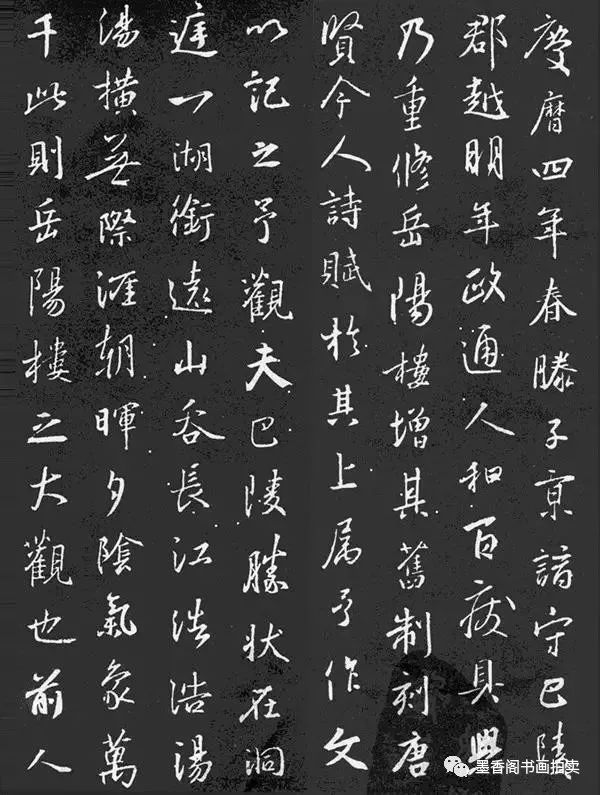 慶曆四年春滕子京謫守巴陵
郡越明年政通人和百廢具興
乃重修岳陽樓增其舊制刻唐
賢今人詩賦於其上属予作文
以記之予觀夫巴陵勝狀在洞
庭一湖銜遠山吞長江浩浩湯
湯橫無際涯朝暉夕陰氣象萬
千此則岳陽樓之大觀也前人
墨香阁书画拍卖